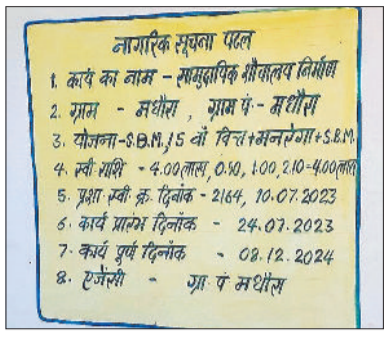 नागरिक सूचना पटल
1. कार्य का नाम - सामुदायिक शौचालय निर्माण
2. ग्राम - मधौरा, ग्राम पं. - मधौरा
3. योजना - S.B.M, 15 वाँ वित्त + मनरेगा + S.B.M.
4. स्वी. राशि - 4.00 (लाख), 0.90, 1.00, 2.10 - 4.00 (लाख)
5. प्रशा. स्वी. क्र. दिनांक - 2164, 10.07.2023
6. कार्य प्रारंभ दिनाँक - 24.07.2023
7. कार्य पूर्ण दिनाँक - 08.12.2024
8. एजेंसी - ग्रा. पं मधौरा